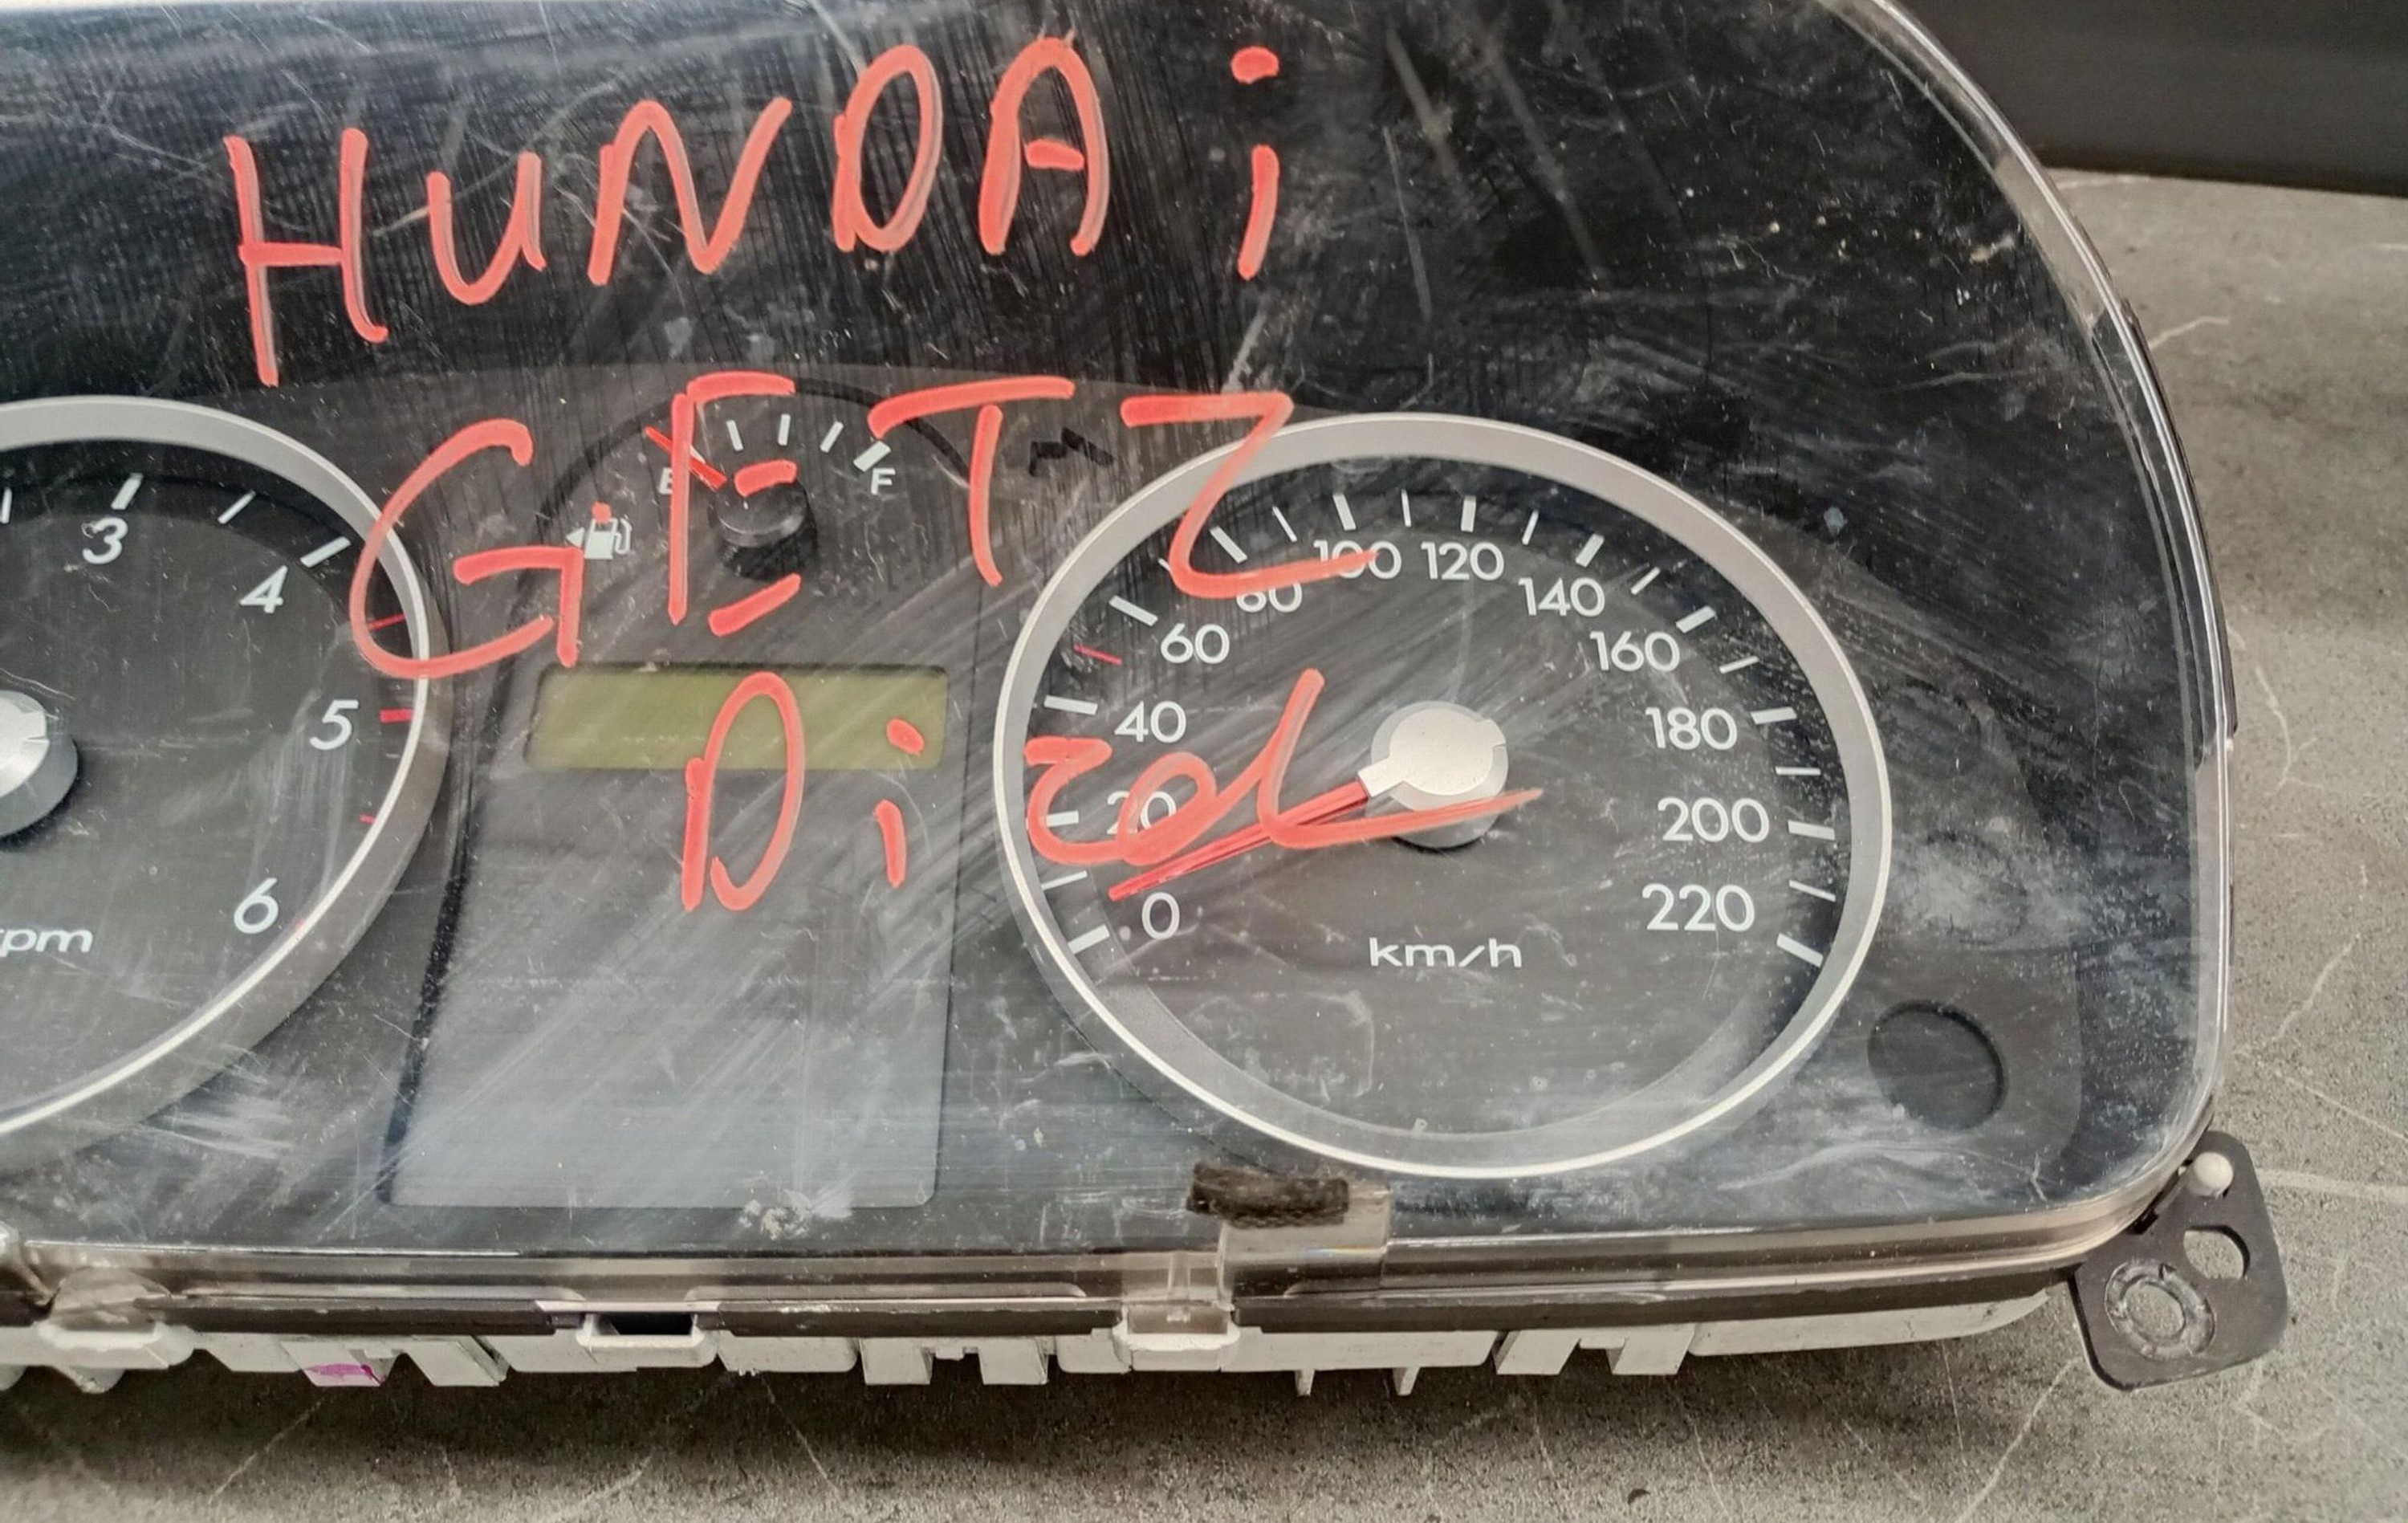 HUNDAi
GETZ
Dizel
E F
3
4
5
6
rpm
0
20
40
60
80
100
120
140
160
180
200
220
km/h